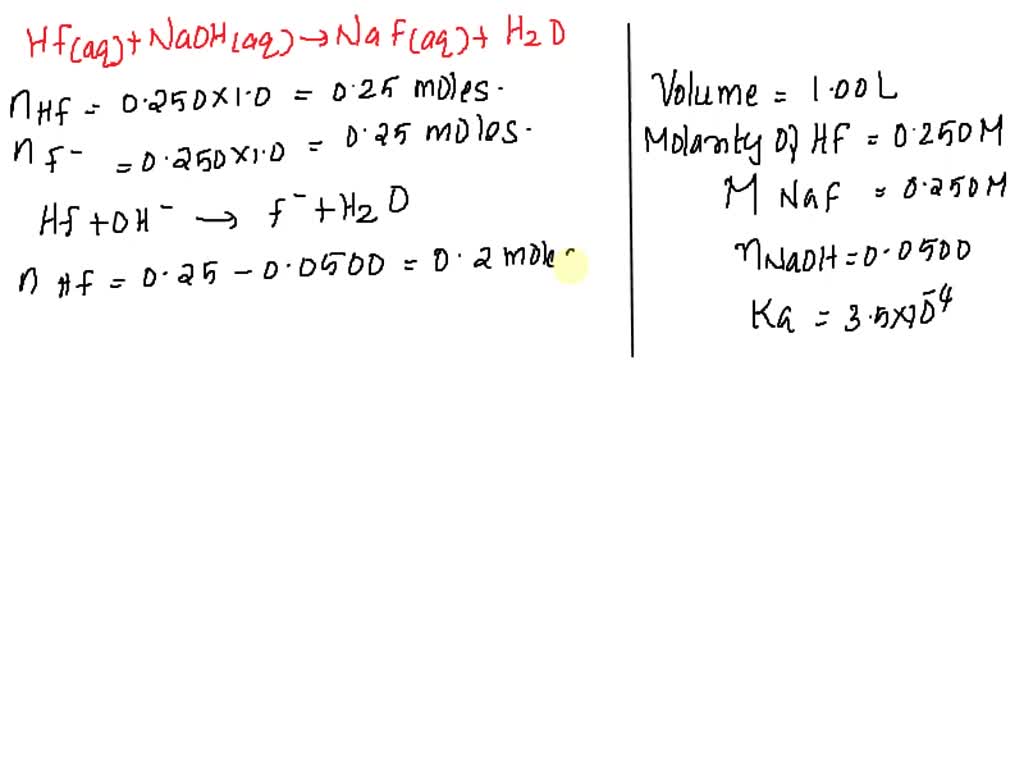 Hf(aq) + NaOH(aq) → Naf(aq) + H₂O
nHf = 0.250 × 1.0 = 0.25 moles.
nf⁻ = 0.250 × 1.0 = 0.25 moles.
Hf + OH⁻ → f⁻ + H₂O
nHf = 0.25 - 0.0500 = 0.2 mole
Volume = 1.00L
Molarity Of HF = 0.250M
M NaF = 0.250M
nNaOH = 0.0500
Ka = 3.5×10⁻⁴